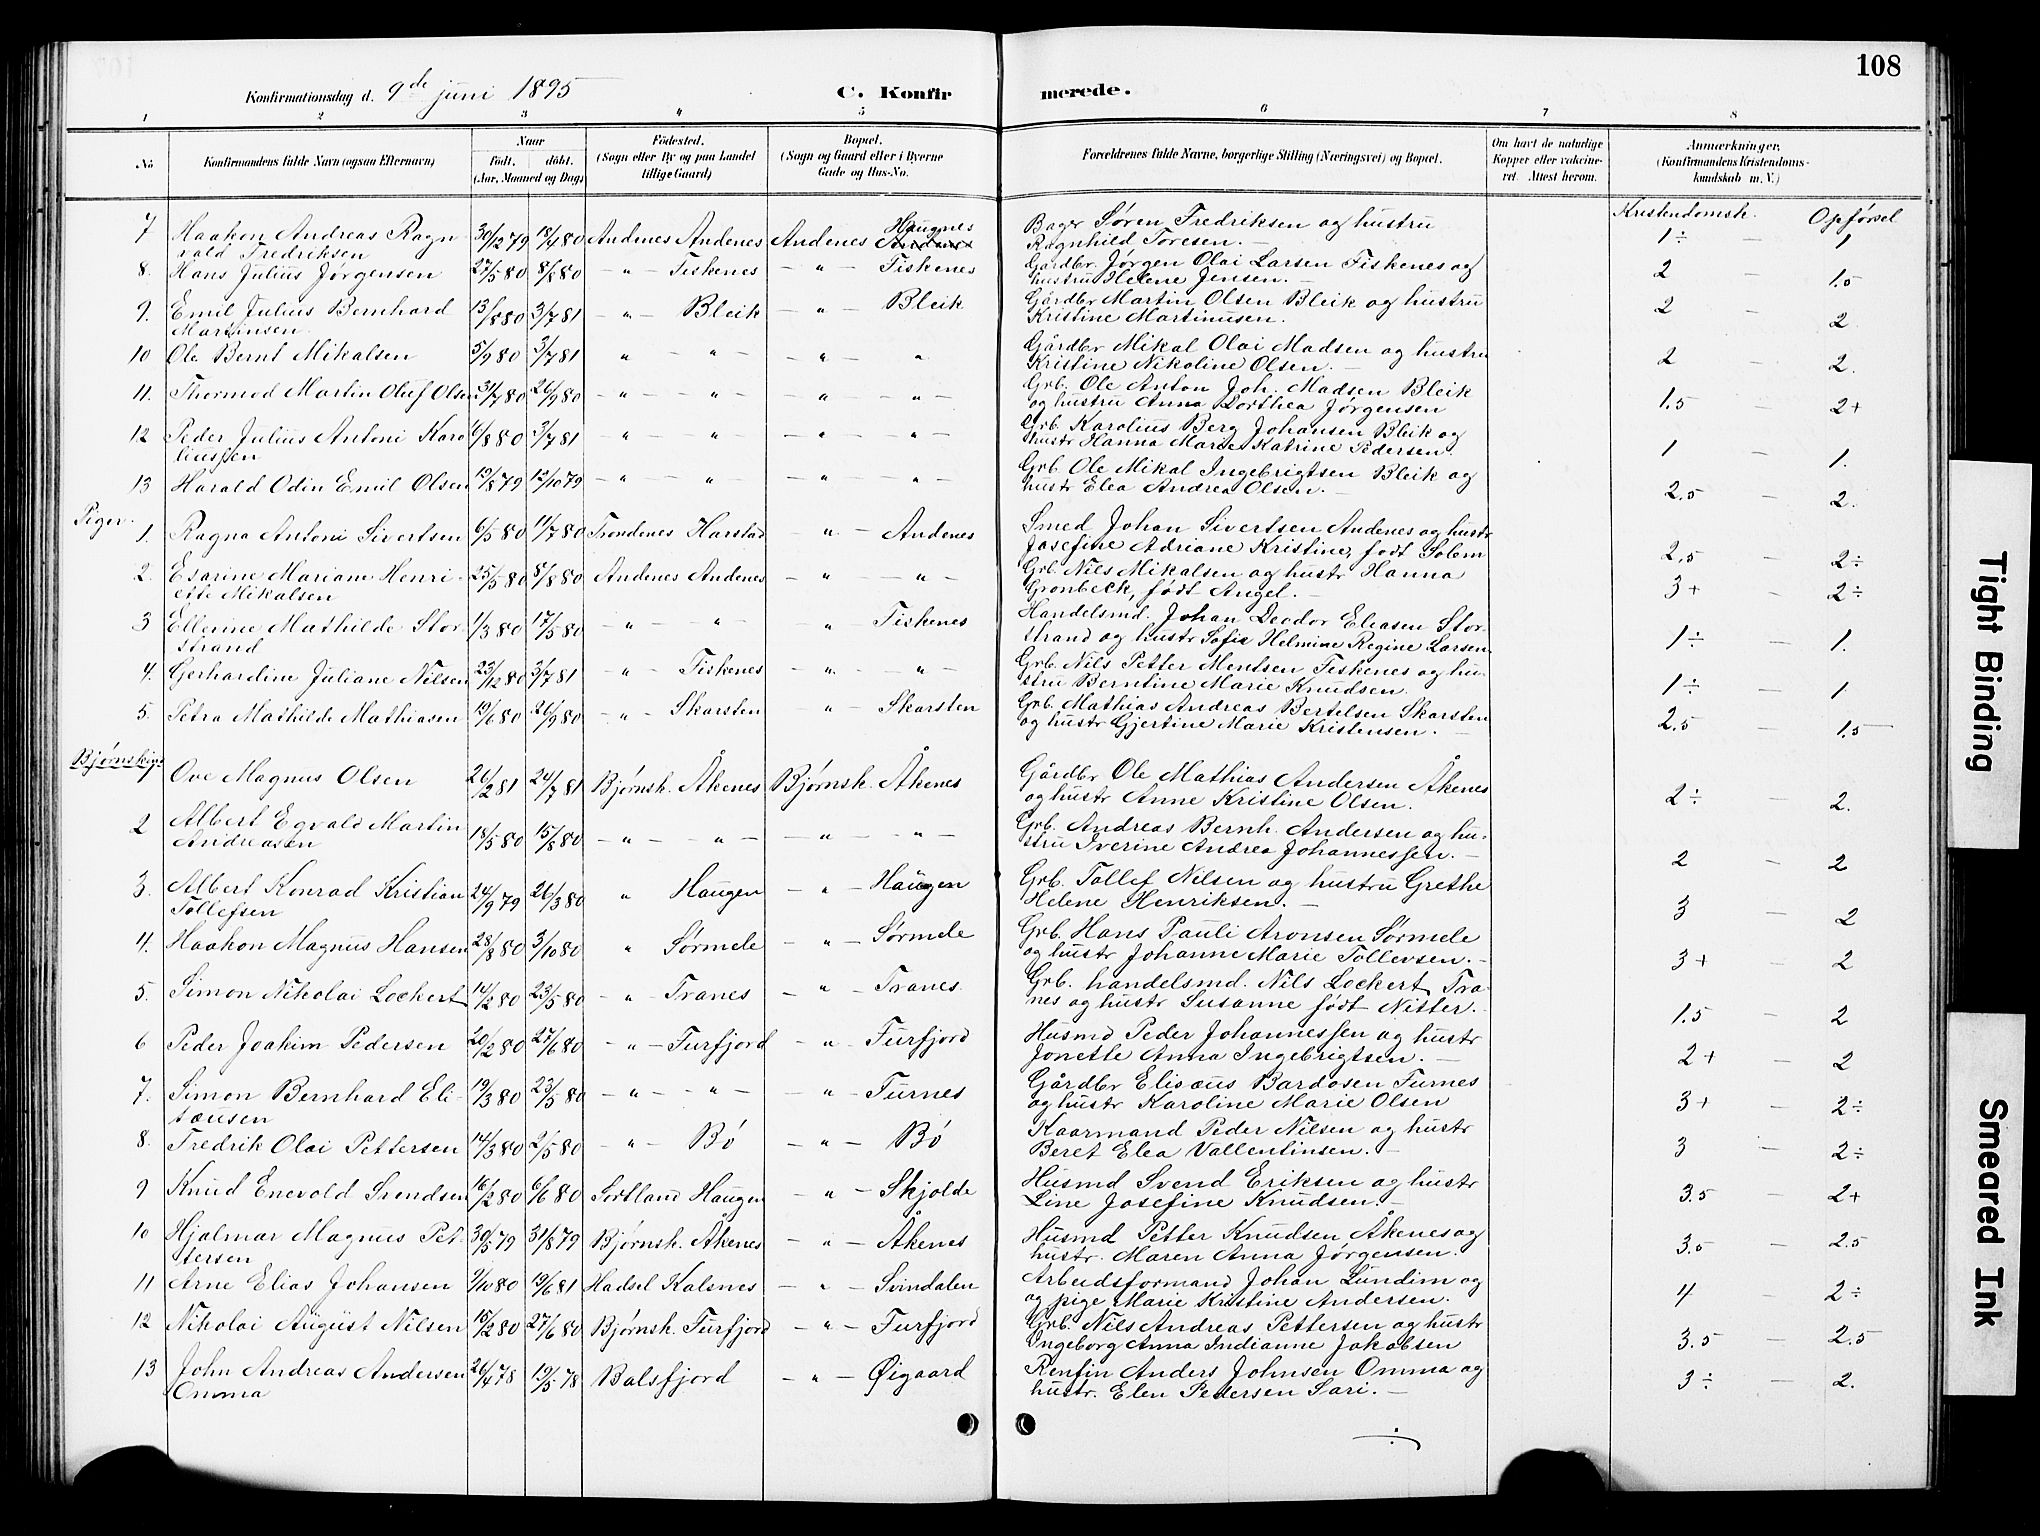 108
Konfirmationsdag d. 9de juni 1895 C. Konfirmerede.
1 2 3 4 5 6 7 8
No Konfirmandens fulde Navn (ogsaa Efternavn) Naar født. døbt. (Aar, Maaned og Dag) Fødested. (Sogn eller By og paa Landet tillige Gaard) Bopæl. (Sogn og Gaard eller i Byerne Gade og Hus-No.) Forældrenes fulde Navne, borgerlige Stilling (Næringsvei) og Bopæl. Om havt de naturlige Kopper eller vaccineret. Attest herom. Anmærkninger. (Konfirmandens Kristendomskundskab m. V.)
Kristendomsk. Opførsel
7 Haakon Andreas Ragn 30/12 79 18/4 80 Andenes Andenes Andenes Haugnes Bager Søren Fredriksen og hustru 1÷ — 1
vald Fredriksen Ragnhild Toresen. —
8. Hans Julius Jørgensen 27/5 80 8/8 80 — " — Fiskenes — " — Fiskenes Gårdbr. Jørgen Olai Larsen Fiskenes og 2 — 1.5
hustru Helene Jensen. —
9. Emil Julius Bernhard 13/8 80 3/7 81 — " — Bleik — " — Bleik Gårdbr Martin Olsen Bleik og hustru 2 — 2
Martinsen. Kristine Martinusen.
10 Ole Bernt Mikalsen 5/9 80 3/7 81 " — " — — " — " Gårdbr Mikal Olai Madsen og hustru 2 — 2.
Kristine Nikoline Olsen. —
11. Thormod Martin Oluf Olsen 31/7 80 26/9 80 — " — — " — " — " — Grb. Ole Anton Joh. Madsen Bleik 1.5 — 2+
og hustru Anna Dorthea Jørgensen
12 Peder Julius Antoni Karo 6/8 80 3/7 81 — " — " — — " — — " — Grb. Karolius Berg Johansen Bleik og 1 — 1.
liussen hustr Hanna Marie Katrine Pedersen.
13 Harald Odin Emil Olsen 19/8 79 12/10 79 — " — " — " — " — Grb. Ole Mikal Ingebrigtsen Bleik og 2.5 — 2.
hustr Elea Andrea Olsen. —
Piger.
1. Ragna Antoni Sivertsen 6/5 80 11/7 80 Trondenes Harstad " — Andenes Smed Johan Sivertsen Andenes og hustr 2.5 — 2÷
Josefine Adriane Kristine, født Solem
2. Esarine Mariane Henri- 25/5 80 8/8 80 Andenes Andenes — " — — " — Grb. Nils Mikalsen og hustr Hanna 3+ — 2÷
ette Mikalsen Grønbeck, født Angel. —
3 Ellerine Mathilde Stor- 1/3 80 17/5 80 — " — " — " Fiskenes Handelsmd. Johan Deodor Eleasen Stor- 1÷ — 1.
strand strand og hustr Sofie Helmine Regine Larsen
4. Gerhardine Juliane Nilsen 23/12 80 3/7 81 — " — Fiskenes — " — " — Grb. Nils Petter Mentsen Fiskenes og hu- 1÷ — 1
stru Berntine Marie Knudsen.
5. Petra Mathilde Mathiasen 19/6 80 26/9 80 — " — Skarsten — " — Skarsten Grb. Mathias Andreas Bertelsen Skarsten 2.5 — 1.5
og hustr Gjertine Marie Kristensen. —
Bjørnskin
1. Ove Magnus Olsen 26/2 81 24/7 81 Bjørnsk. Åkenes Bjørnsk. Åkenes Gårdbr Ole Mathias Andersen Åkenes 2÷ — 2.
og hustr Anne Kristine Olsen.
2 Albert Egvald Martin 18/5 80 15/8 80 — " — " — — " — — " — Grb. Andreas Bernh. Andersen og hu- 2 — 2
Andreasen stru Iverine Andrea Johannessen. —
3. Albert Konrad Kristian 24/9 79 26/3 80 " Haugen — " — Haugen Grb. Tollef Nilsen og hustru Grethe 3 — 2
Tollefsen Helene Henriksen. —
4. Haakon Magnus Hansen 28/8 80 3/10 80 " Sørmele — " — Sørmele Grb. Hans Pauli Aronsen Sørmele 3+ — 2
og hustr Johanne Marie Tollevsen. —
5. Simon Nikolai Lockert 14/2 80 23/5 80 — " — Tranes — " — Tranes Grb. handelsmd. Nils Lockert, Tra- 1.5 — 2
nes og hustr Susanne født Nitter.
6 Peder Joakim Pedersen 20/2 80 27/6 80 — " — Furfjord — " — Furfjord Husmd Peder Johannessen og hustr 2+ — 2
Jonette Anna Ingebrigtsen. —
7. Simon Bernhard Eli- 19/3 80 23/5 80 — " — " — — " — Turnes Gårdbr Elisæus Bardosen Turnes 3+ — 2÷
sæusen og hustr Karoline Marie Olsen
8. Fredrik Olai Pettersen 14/3 80 2/5 80 — " — Bø — " — Bø Kaarmand Peder Nilsen og hustr 3 — 2÷
Beret Elea Vallentinsen. —
9 Knud Enevold Svendsen 16/2 80 6/6 80 Sortland Haugen — " — Skjolde Husmd Svend Eriksen og hustr 3.5 — 2+
Line Josefine Knudsen. —
10 Hjalmar Magnus Pet- 30/5 79 31/8 79 Bjørnsk. Åkenes — " — Åkenes Husmd Petter Knudsen Åkenes og 3.5 — 2.5
tersen hustr. Maren Anna Jørgensen.
11 Arne Elias Johansen 9/10 80 19/6 81 Hadsel Kalsnes — " — Svindalen Arbeidsformand Johan Lundim og 4 — 2÷
og pige Marie Kristine Andersen.
12 Nikolai August Nilsen 15/2 80 27/6 80 Bjørnsk. Furfjord — " — Furfjord Grb. Nils Andreas Pettersen og hustr 3.5 — 2.5
Ingeborg Anna Indianne Jakobsen
13 John Andreas Andersen 26/4 78 19/5 78 Balsfjord — " — Øigaard Renfin Anders Johnsen Omma og 3÷ — 2.
Omma hustr. Elen Pedersen Sari. —
Tight Binding
Smeared Ink